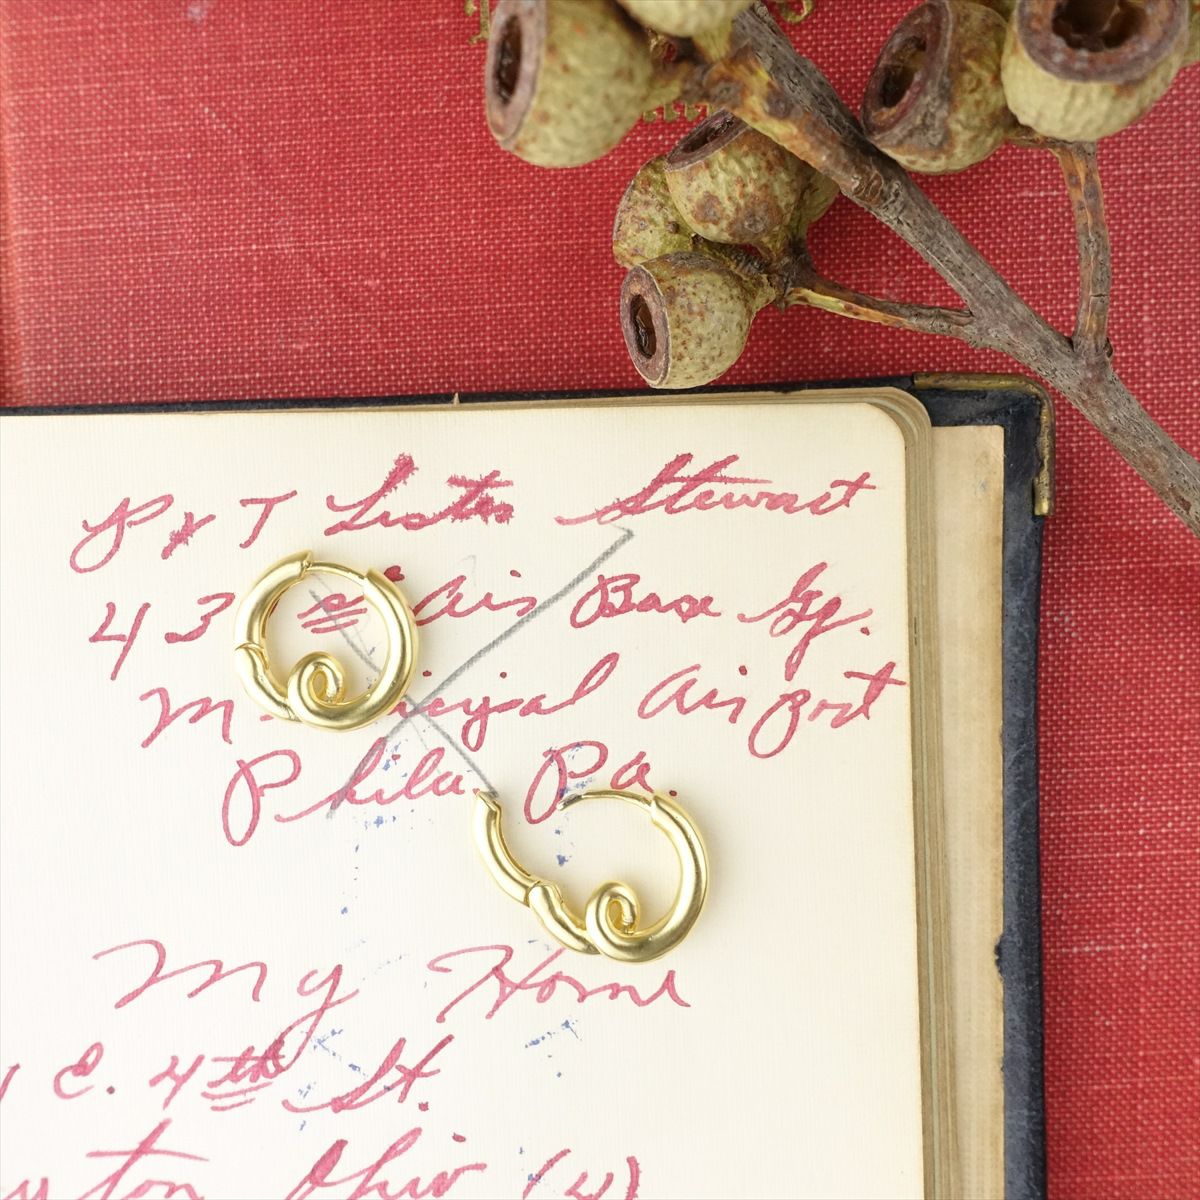 Pvt Lester Stewart
43 Air Base Sq.
Municipal Airport
Phila. Pa.
My Home
E. 4th St.
Ohio (4)